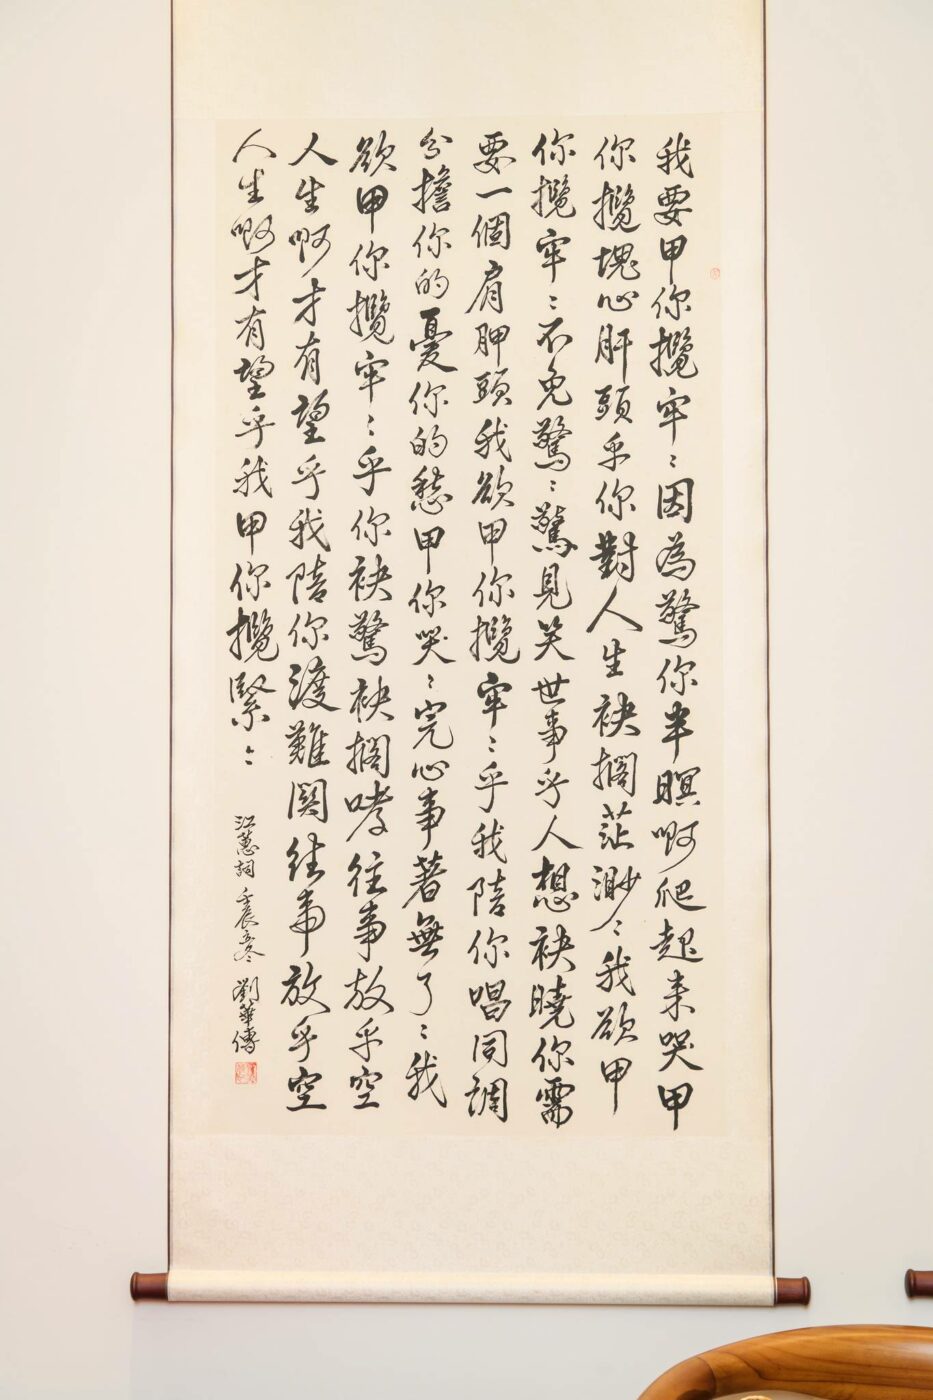 我要甲你攬牢〻因為驚你半暝啊爬起來哭甲
你攬塊心肝頭乎你對人生袂擱茫渺〻我欲甲
你攬牢〻不免驚〻驚見笑世事乎人想袂曉你需
要一個肩胛頭我欲甲你攬牢〻乎我陪你唱同調
分擔你的憂你的愁甲你哭〻完心事著無了〻我
欲甲你攬牢〻乎你袂驚袂擱哮往事放乎空
人生啊才有望乎我陪你渡難関往事放乎空
人生啊才有望乎我甲你攬緊〻
江蕙詞 壬辰冬 劉華傳